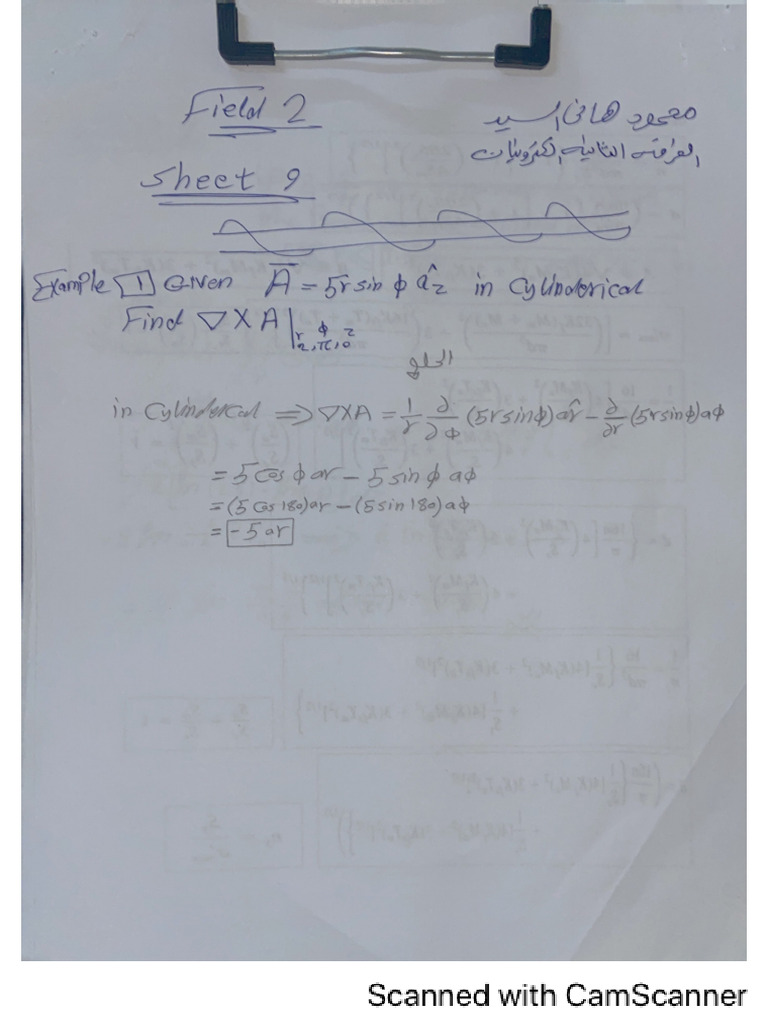 Field 2
محمود هانى السيد
الفرقة الثانية الكترونيات
Sheet 9
Example 1 Given A̅ = 5r sin ϕ âz in Cylinderical
Find ∇XA|r ϕ z 2,π,0
الحل
in Cylinderical ⇒ ∇XA = 1/r ∂/∂ϕ (5rsinϕ) âr - ∂/∂r (5rsinϕ)aϕ
= 5 Cos ϕ ar - 5 sin ϕ aϕ
= (5 Cos 180)ar - (5 sin 180)aϕ
= -5 ar
Scanned with CamScanner